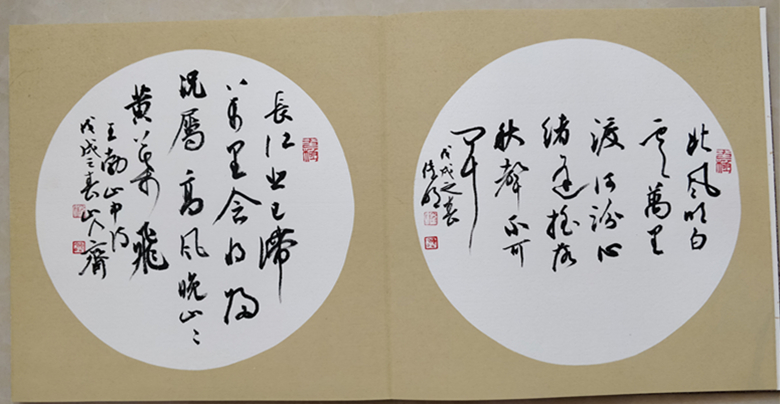 北風吹白
雲萬里
渡河汾心
緒逢搖落
秋聲不可
聞
戊戌之春
長江悲已滯
萬里念将歸
況屬高風晚山〻
黄葉飛
王勃山中诗
戊戌之春
齋